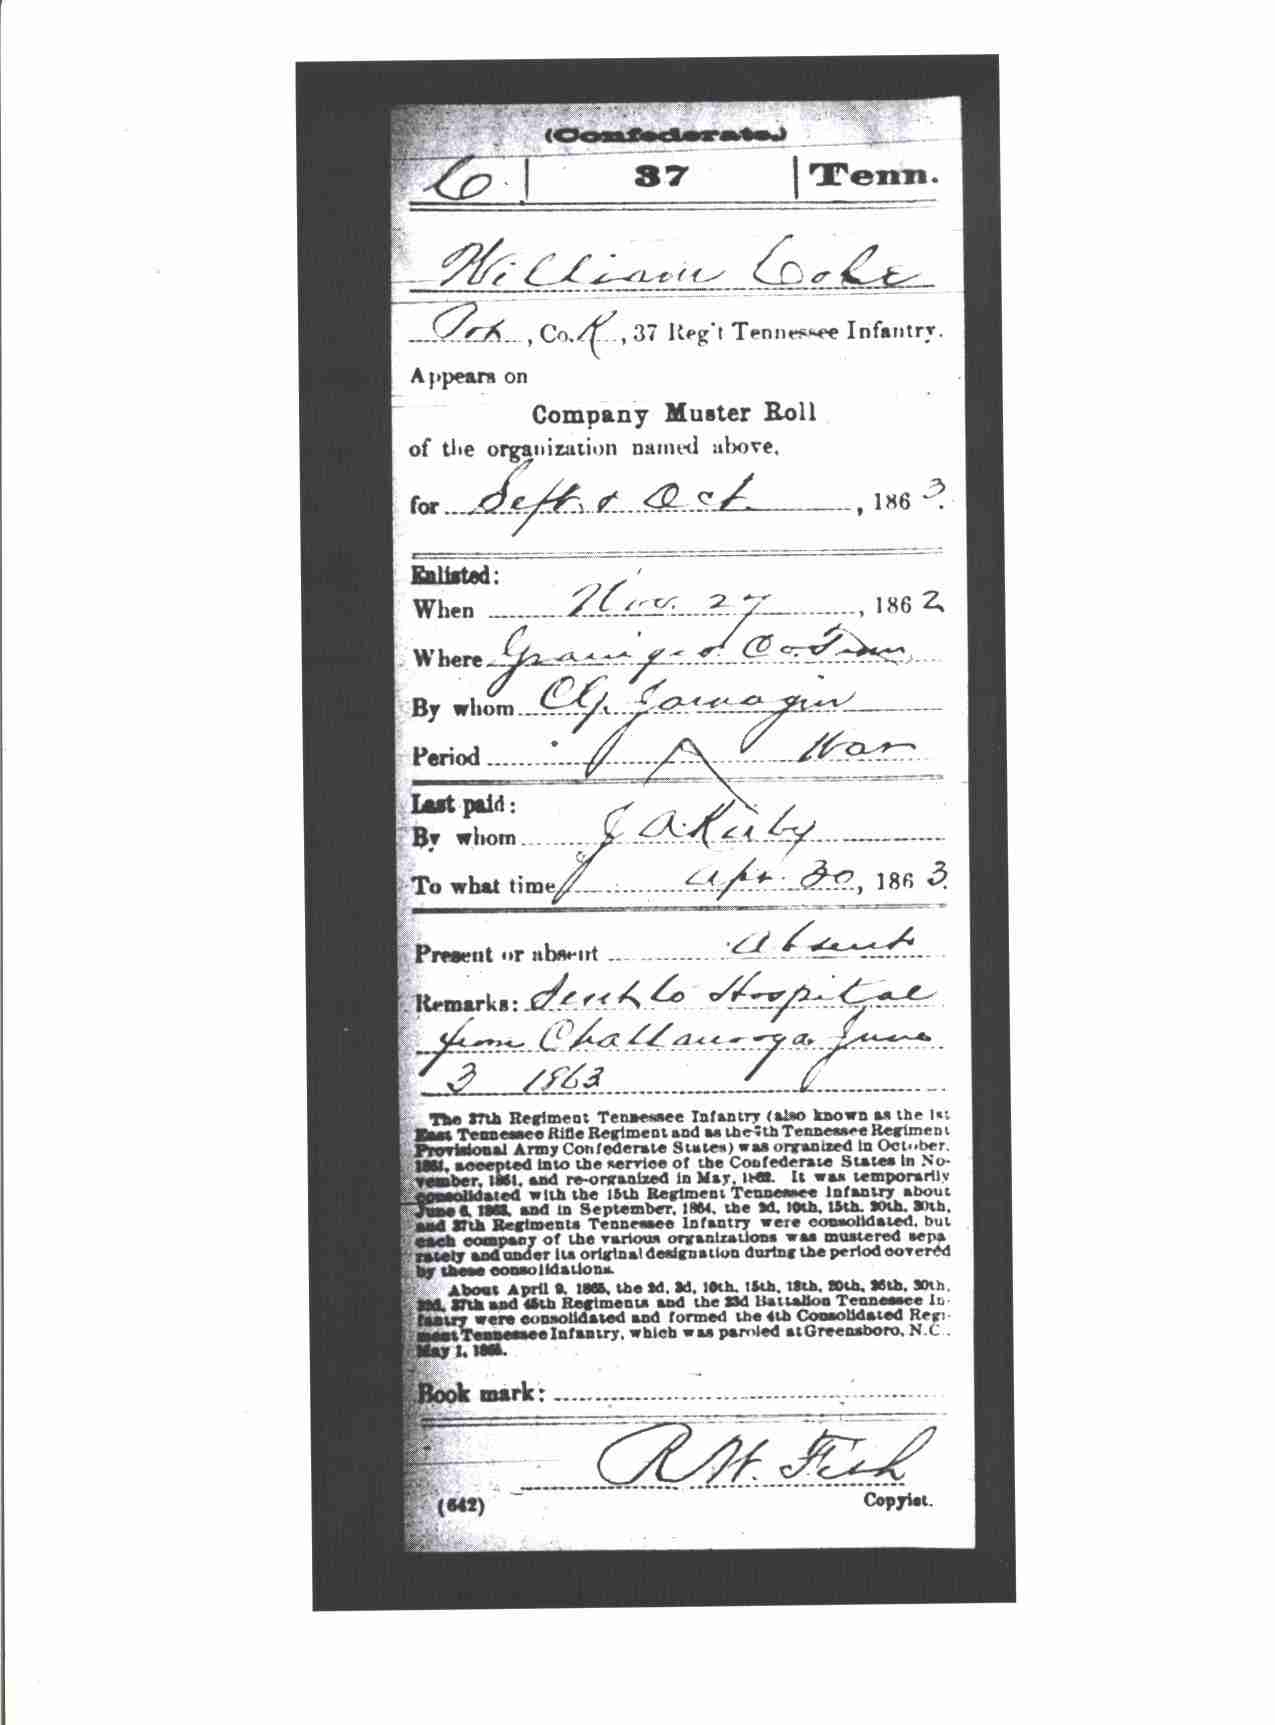 (Confederate.)
C | 37 | Tenn.
William Cole
Pvt, Co. K, 37 Reg't Tennessee Infantry.
Appears on
Company Muster Roll
of the organization named above,
for Sept. & Oct., 1863.
Enlisted:
When Nov. 27, 1862
Where Grainger Co. Tenn
By whom C.G. Jarnagin
Period War
Last paid:
By whom J A Kirby
To what time Apr. 30, 1863.
Present or absent absent
Remarks: Sent to Hospital
from Chattanooga June
3 1863
The 37th Regiment Tennessee Infantry (also known as the 1st
East Tennessee Rifle Regiment and as the 7th Tennessee Regiment
Provisional Army Confederate States) was organized in October,
1861, accepted into the service of the Confederate States in No-
vember, 1861, and re-organized in May, 1862. It was temporarily
consolidated with the 15th Regiment Tennessee Infantry about
June 6, 1863, and in September, 1864, the 2d, 10th, 15th, 20th, 30th,
and 37th Regiments Tennessee Infantry were consolidated, but
each company of the various organizations was mustered sepa
rately and under its original designation during the period covered
by these consolidations.
About April 9, 1865, the 2d, 3d, 10th, 15th, 18th, 20th, 26th, 30th,
32d, 37th and 45th Regiments and the 23d Battalion Tennessee In-
fantry were consolidated and formed the 4th Consolidated Regi-
ment Tennessee Infantry, which was paroled at Greensboro, N.C.,
May 1, 1865.
Book mark:
R W. Fish
(642) Copyist.